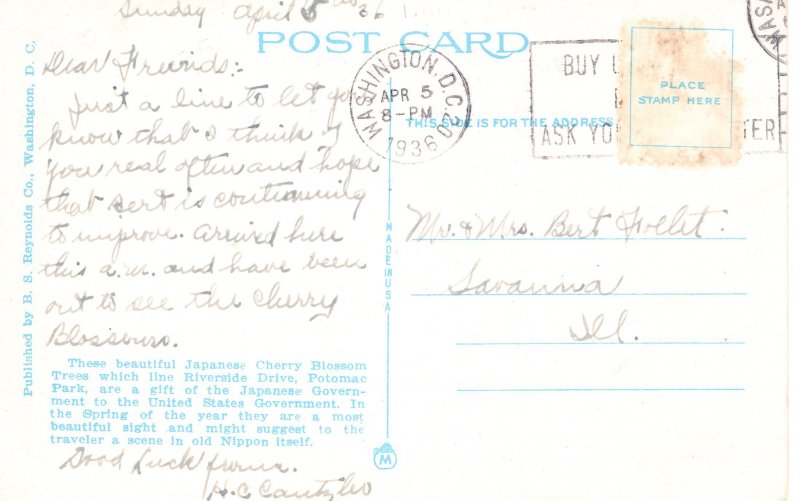 Sunday April 5 36
POST CARD
Dear Friends:-
Just a line to let you
know that I think of
you real often and hope
that Bert is continuing
to improve. Arrived here
this a.m. and have been
out to see the Cherry
Blossoms.
These beautiful Japanese Cherry Blossom
Trees which line Riverside Drive, Potomac
Park, are a gift of the Japanese Govern-
ment to the United States Government. In
the Spring of the year they are a most
beautiful sight and might suggest to the
traveler a scene in old Nippon itself.
Good luck from.
H.C.
Published by B. S. Reynolds Co., Washington, D. C.
MADE IN USA
M
WASHINGTON, D.C.
APR 5
8-PM
1936
BUY U
ASK YO TER
WAS
PLACE
STAMP HERE
THIS SIDE IS FOR THE ADDRESS
Mr. & Mrs. Bert Follet.
Savanna
Ill.